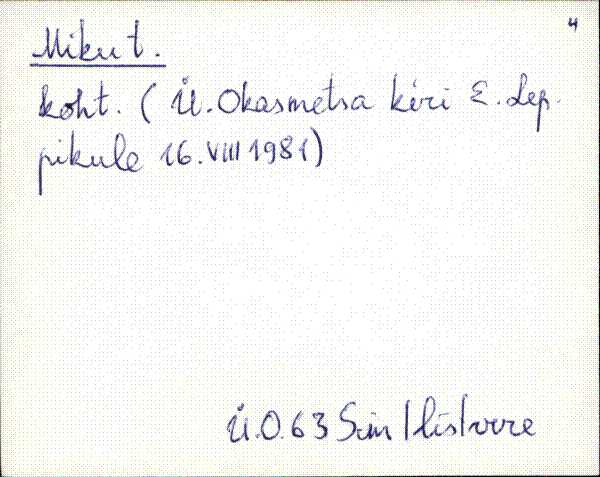 4
Miku t.
koht. (Ü. Okasmetsa kiri E. Lep-
pikule 16. VIII 1981)
Ü.O. 63 Sim